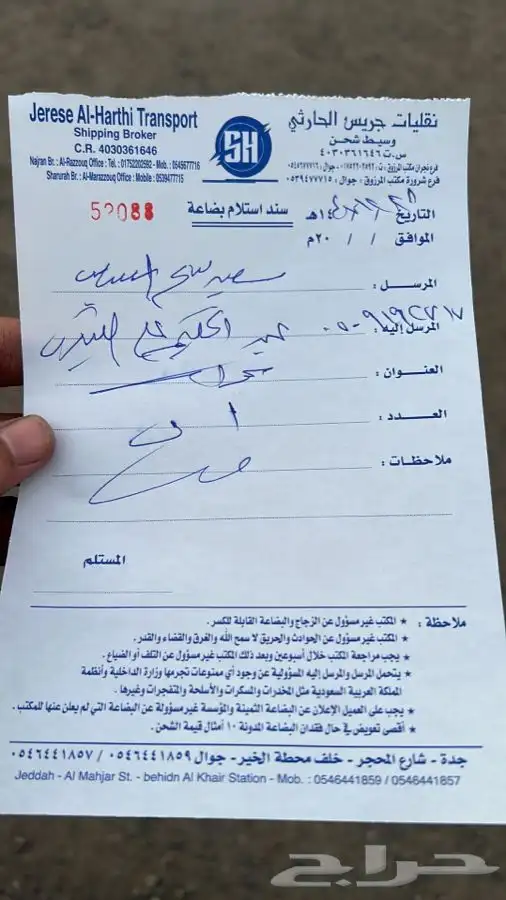 Jerese Al-Harthi Transport
Shipping Broker
C.R. 4030361646
Najran Br. : Al-Razzouq Office : Tel. : 01752202592 - Mob. : 0545677716
Sharurah Br. : Al-Marazzouq Office : Mobile : 0539477715
SH
نقليات جريس الحارثي
وسيط شحن
س.ت ٤٠٣٠٣٦١٦٤٦
فرع شرورة مكتب المرزوق : جوال : ٠٥٣٩٤٧٧٧١٥
52088
سند استلام بضاعة
التاريخ ١٤هـ
الموافق / / ٢٠م
المرسل :
المرسل إليه : عبد الحكيم علي
العنوان : نجران
العدد : ١
ملاحظات :
المستلم
ملاحظة : ★ المكتب غير مسؤول عن الزجاج والبضاعة القابلة للكسر .
★ المكتب غير مسؤول عن الحوادث والحريق لا سمح الله والغرق والقضاء والقدر.
★ يجب مراجعة المكتب خلال أسبوعين وبعد ذلك المكتب غير مسؤول عن التلف أو الضياع .
★ يتحمل المرسل والمرسل إليه المسؤولية عن وجود أي ممنوعات تجرمها وزارة الداخلية وأنظمة
المملكة العربية السعودية مثل المخدرات والمسكرات والأسلحة والمتفجرات وغيرها .
★ يجب على العميل الإعلان عن البضاعة الثمينة والمؤسسة غير مسؤولة عن البضاعة التي لم يعلن عنها للمكتب.
★ أقصى تعويض في حال فقدان البضاعة المدونة ١٠ أمثال قيمة الشحن .
جدة - شارع المحجر - خلف محطة الخير - جوال ٠٥٤٦٤٤١٨٥٩ / ٠٥٤٦٤٤١٨٥٧
Jeddah - Al Mahjar St. - behidn Al Khair Station - Mob. : 0546441859 / 0546441857
حراج